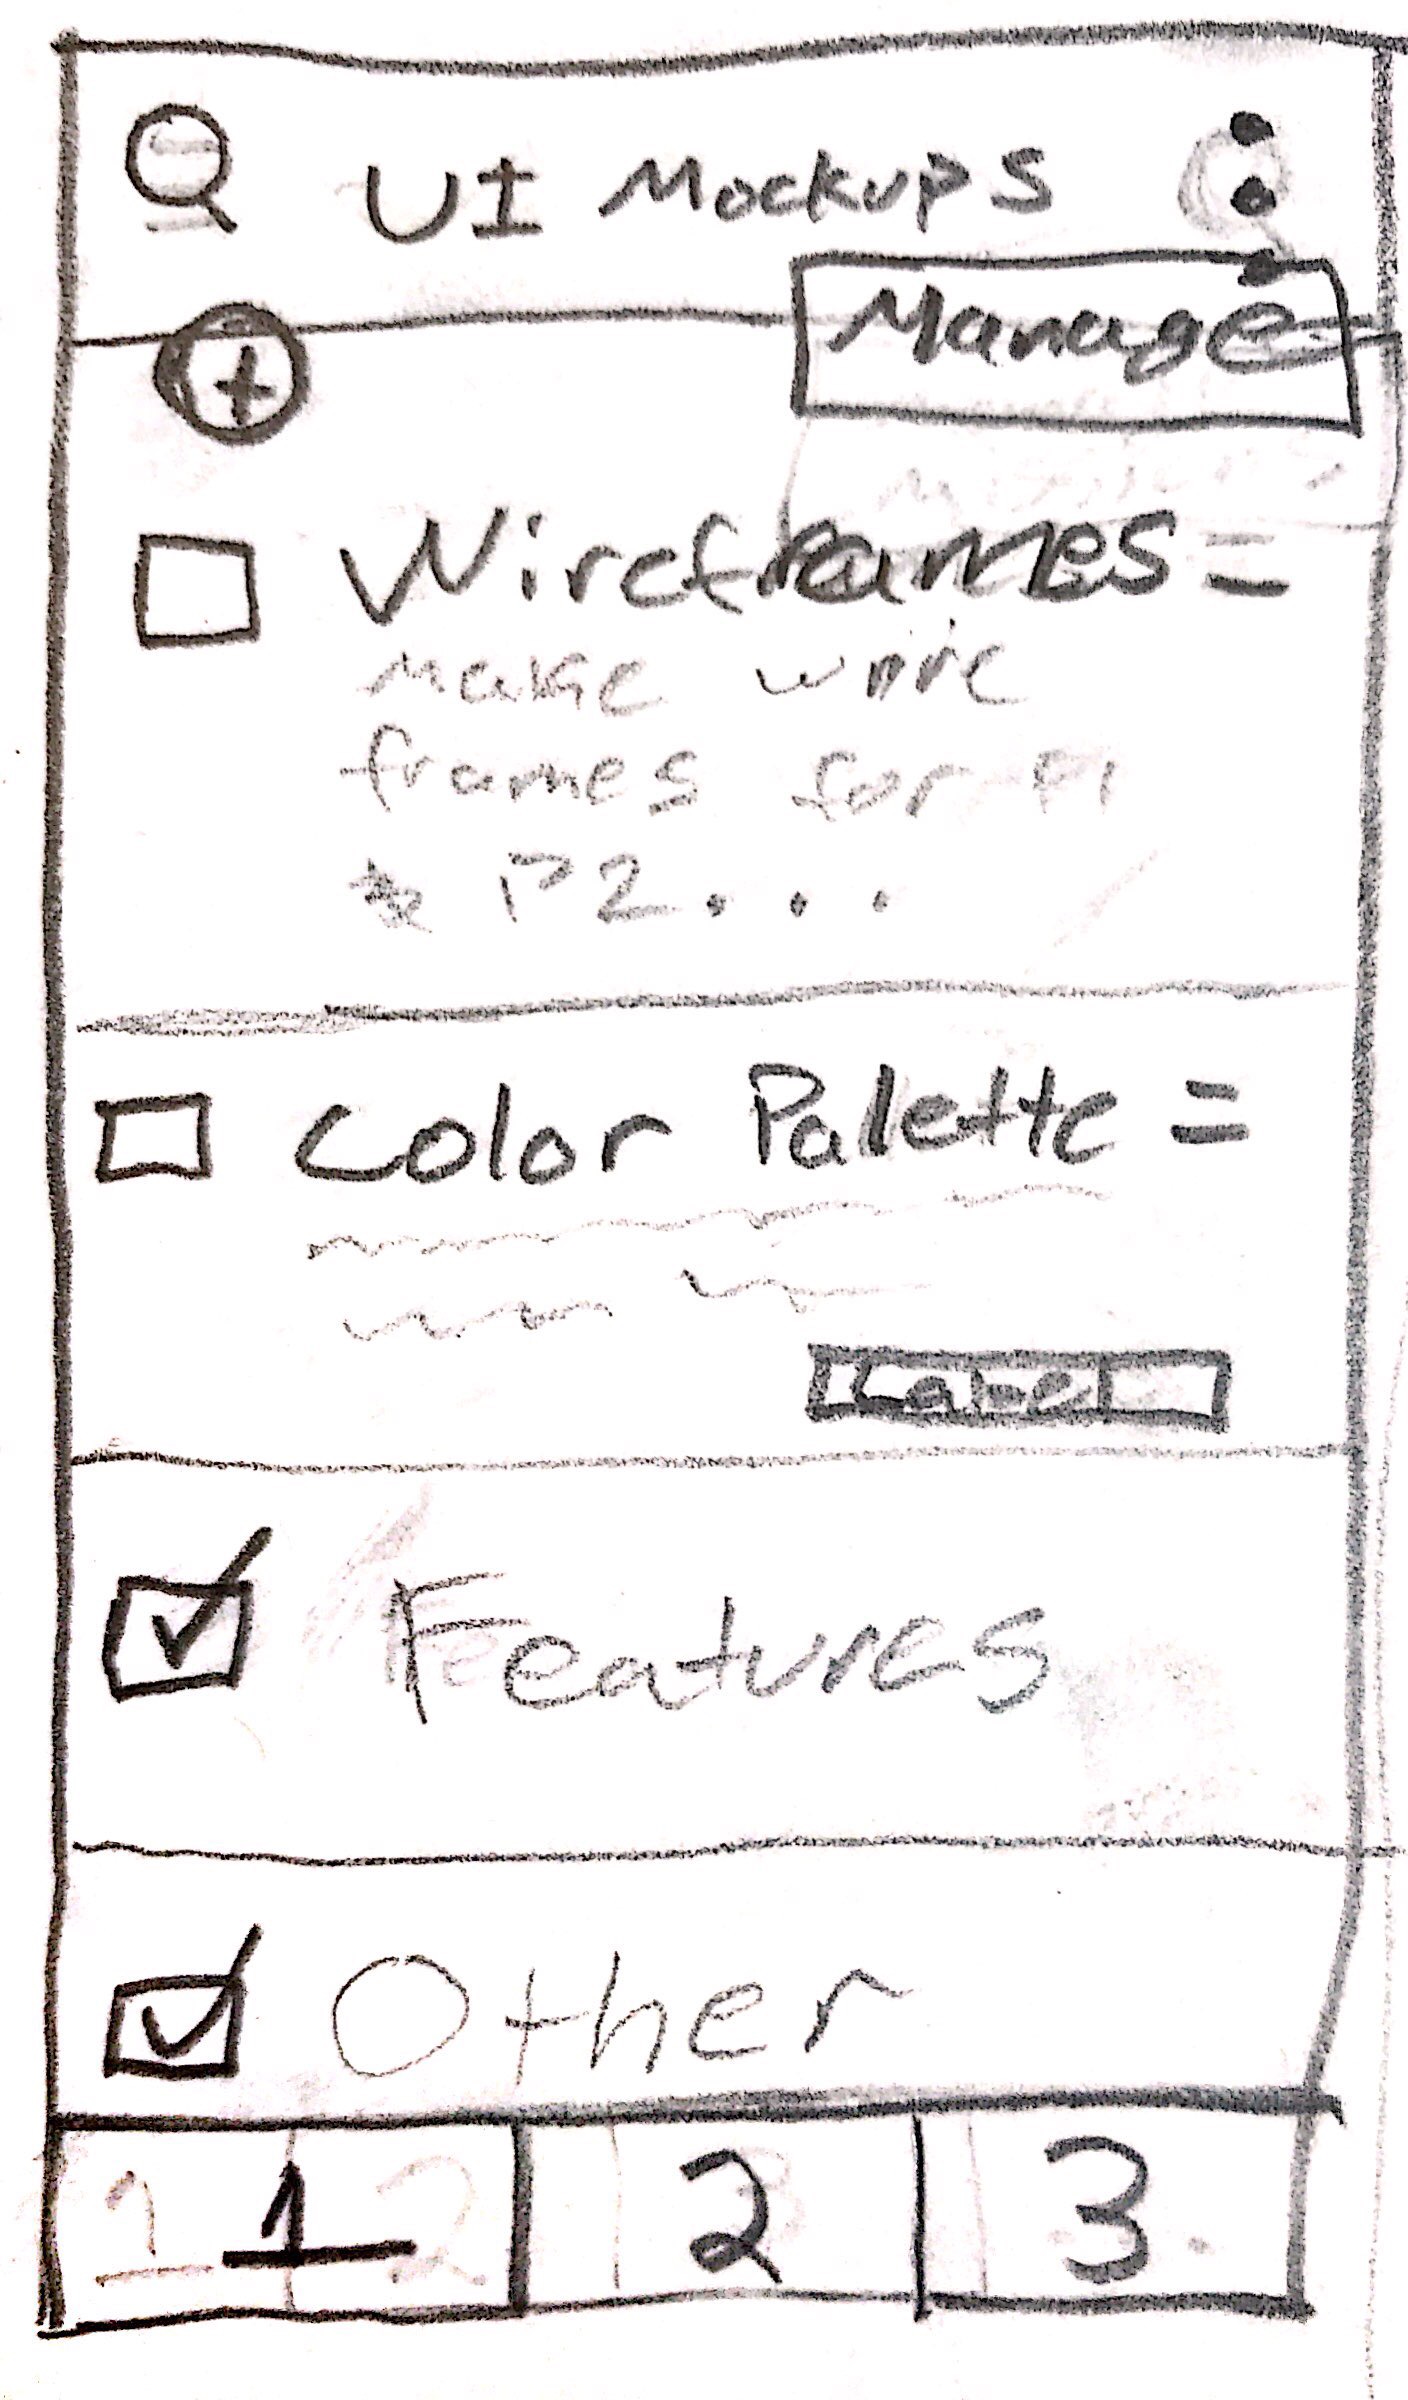 UI Mockups
Manage
+
Wireframes =
make wire
frames for P1
& P2...
Color Palette =
Label
Features
Other
1 2 3